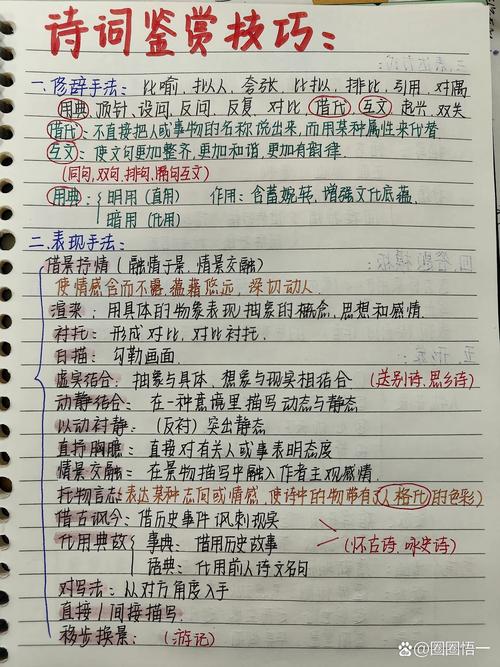 诗词鉴赏技巧:
一.修辞手法: 比喻,拟人,夸张,比拟,排比,引用,对偶
用典,顶针,设问,反问,反复,对比,借代,互文,起兴,双关
借代: 不直接把人或事物的名称说出来,而用某种属性来代替
互文: 使文句更加整齐,更加和谐,更加有韵律.
(同句,双句,排句,隔句互文)
用典: 明用(直用) 作用: 含蓄婉转,增强文化底蕴.
暗用(化用)
二.表现手法:
借景抒情(融情于景,情景交融)
使情感含而不露,蕴藉悠远,深切动人.
渲染: 用具体的物象表现抽象的概念,思想和感情.
衬托: 形成对比,对比衬托.
白描: 勾勒画面.
虚实结合: 抽象与具体,想象与现实相结合 (送别诗,思乡诗)
动静结合: 在一种意境里描写动态与静态
以动衬静: (反衬)突出静态
直抒胸臆: 直接对有关人或事表明态度
情景交融: 在景物描写中融入作者主观感情.
托物言志:表达某种志向或情感,使诗中的物带有了人格化的色彩)
借古讽今: 借历史事件讽刺现实
化用典故 事典: 借用历史故事 (怀古诗,咏史诗)
语典: 化用前人诗文名句
对写法: 从对方角度入手
直接/间接描写.
移步换景: (游记)
@圈圈悟一